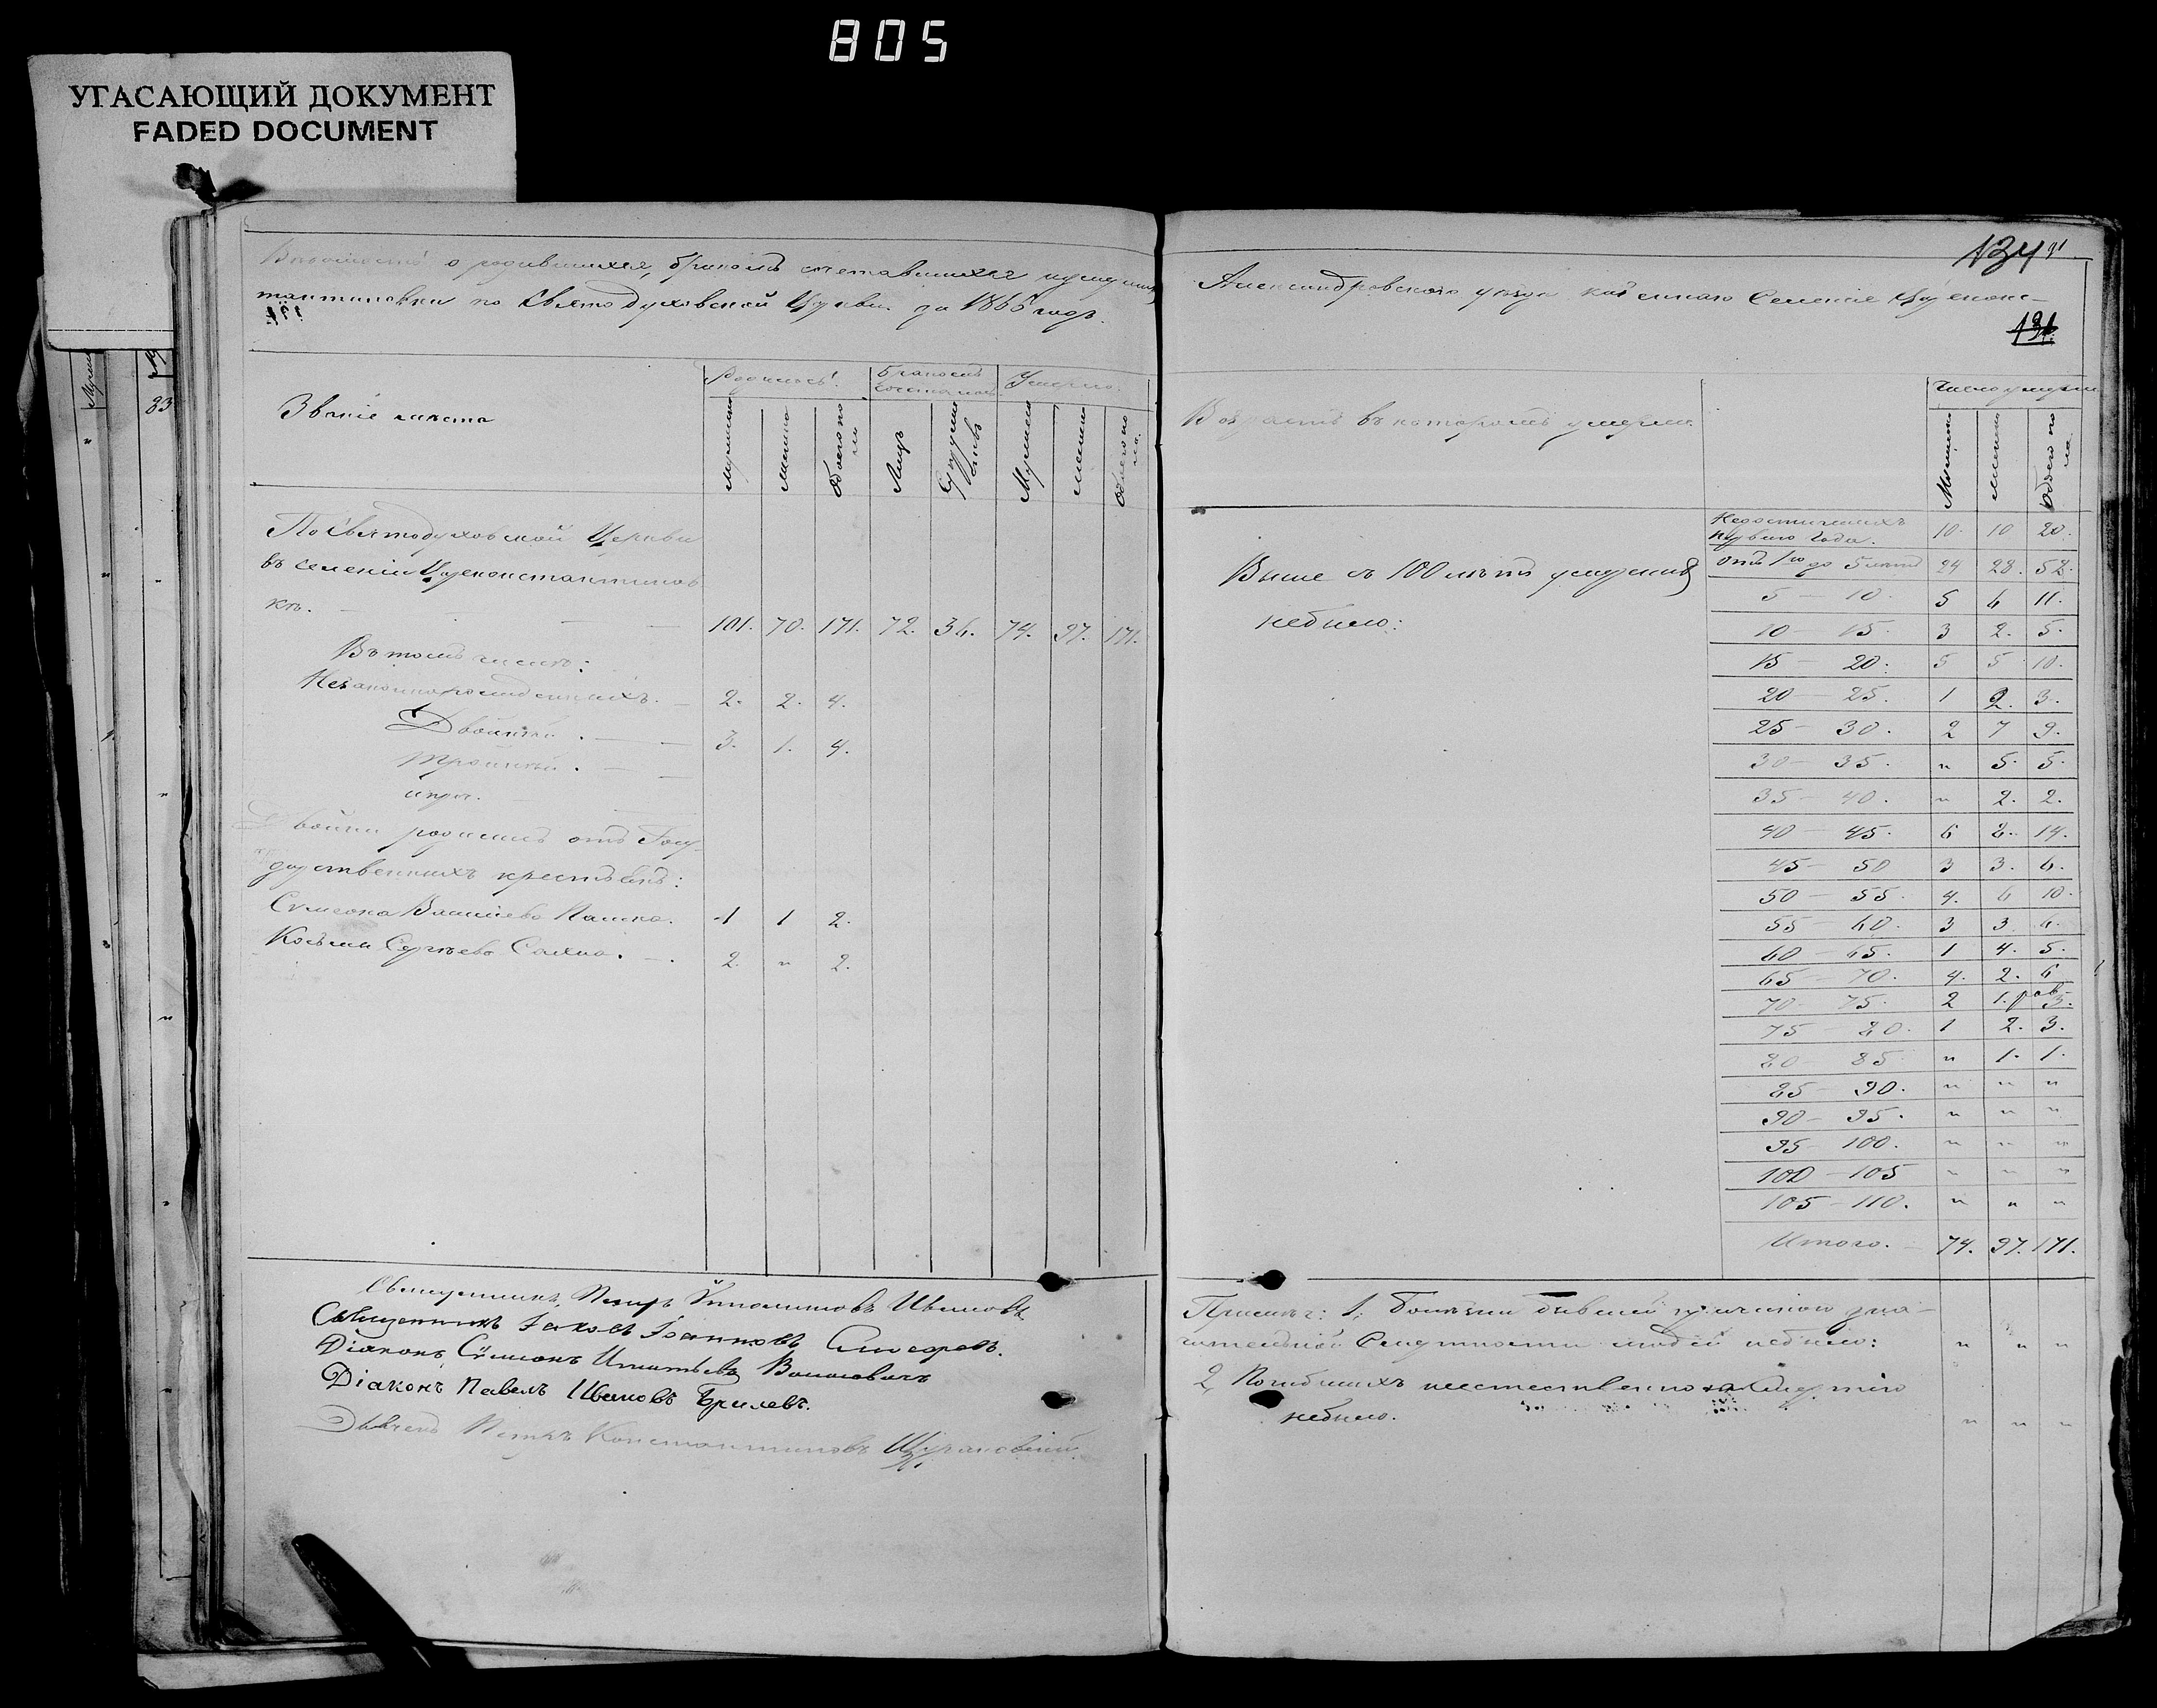 805
УГАСАЮЩИЙ ДОКУМЕНТ
FADED DOCUMENT
Вѣдомость о родившихся, бракомъ сочетавшихся и умершихъ
по Свято Духовской Церкви за 186 годъ.
Званіе мѣста
Родилось
Бракомъ сочеталось
Умерло
мужеска
женска
Обоего пола
Лицъ
Супружествъ
Мужеска
женска
Обоего пола
По Святодуховской Церкви
въ селеніи Цареконстантинов
кѣ. 101. 70. 171. 72. 36. 74. 97. 171.
Въ томъ числѣ:
Незаконнорожденныхъ. 2. 2. 4.
Двойни. 3. 1. 4.
Тройни.
и проч.
Двойни родились отъ Госу-
дарственныхъ крестьянъ:
1 1 2.
Козьмы Сергѣева 2. " 2.
Священникъ Петръ Ивановъ
Священникъ Іаковъ Іоанновъ
Діаконъ Сѵмеонъ
Діаконъ Павелъ Ивановъ
Петръ Константиновъ
134
Александровскаго уѣзда казеннаго Селенія Цареконс-
131
Возрастъ въ которомъ умерли
Число умерш
Мужеска
женска
Обоего пола
Выше 100 лѣтъ умершихъ
небыло:
Недостигшихъ
перваго года. 10. 10 20.
отъ 1го до 5 лѣтъ 24 28. 52.
5 — 10. 5 6 11.
10 — 15. 3 2. 5.
15 — 20. 5 5 10.
20 — 25. 1 2. 3.
25 — 30. 2 7 9.
30 — 35. " 5. 5.
35 — 40. " 2. 2.
40 — 45. 6 8. 14.
45 — 50 3 3. 6.
50 — 55. 4. 6 10.
55 — 60. 3 3. 6.
60 — 65. 1 4. 5.
65 — 70. 4. 2. 6
70 — 75. 2 1. 3.
75 — 80. 1 2. 3.
80 — 85 " 1. 1.
85 — 90. " " "
90 — 95. " " "
95 — 100. " " "
100 — 105 " " "
105 — 110. " " "
Итого. 74. 97. 171.
Примѣч: 1, Болѣзни бывшей причиною зна-
чительной Смертности людей небыло: " " "
2, Погибшихъ неестественною Смертію
небыло. " " "